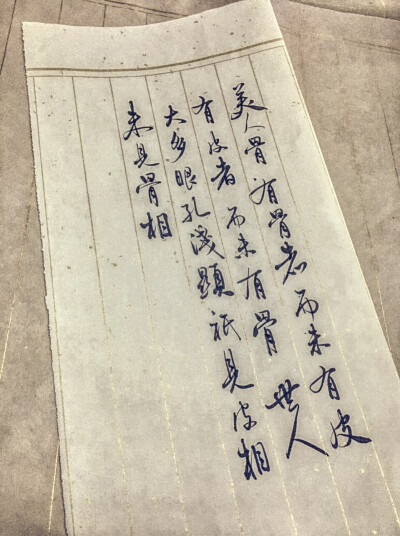 美人骨 有骨者而未有皮
有皮者 而未有骨 世人
大多眼孔淺顯祇見皮相
未見骨相